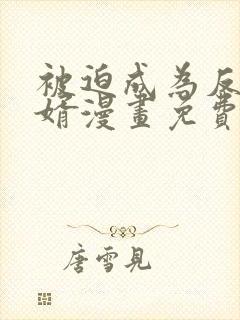 被迫成為反
婿漫畫免費
唐雪見